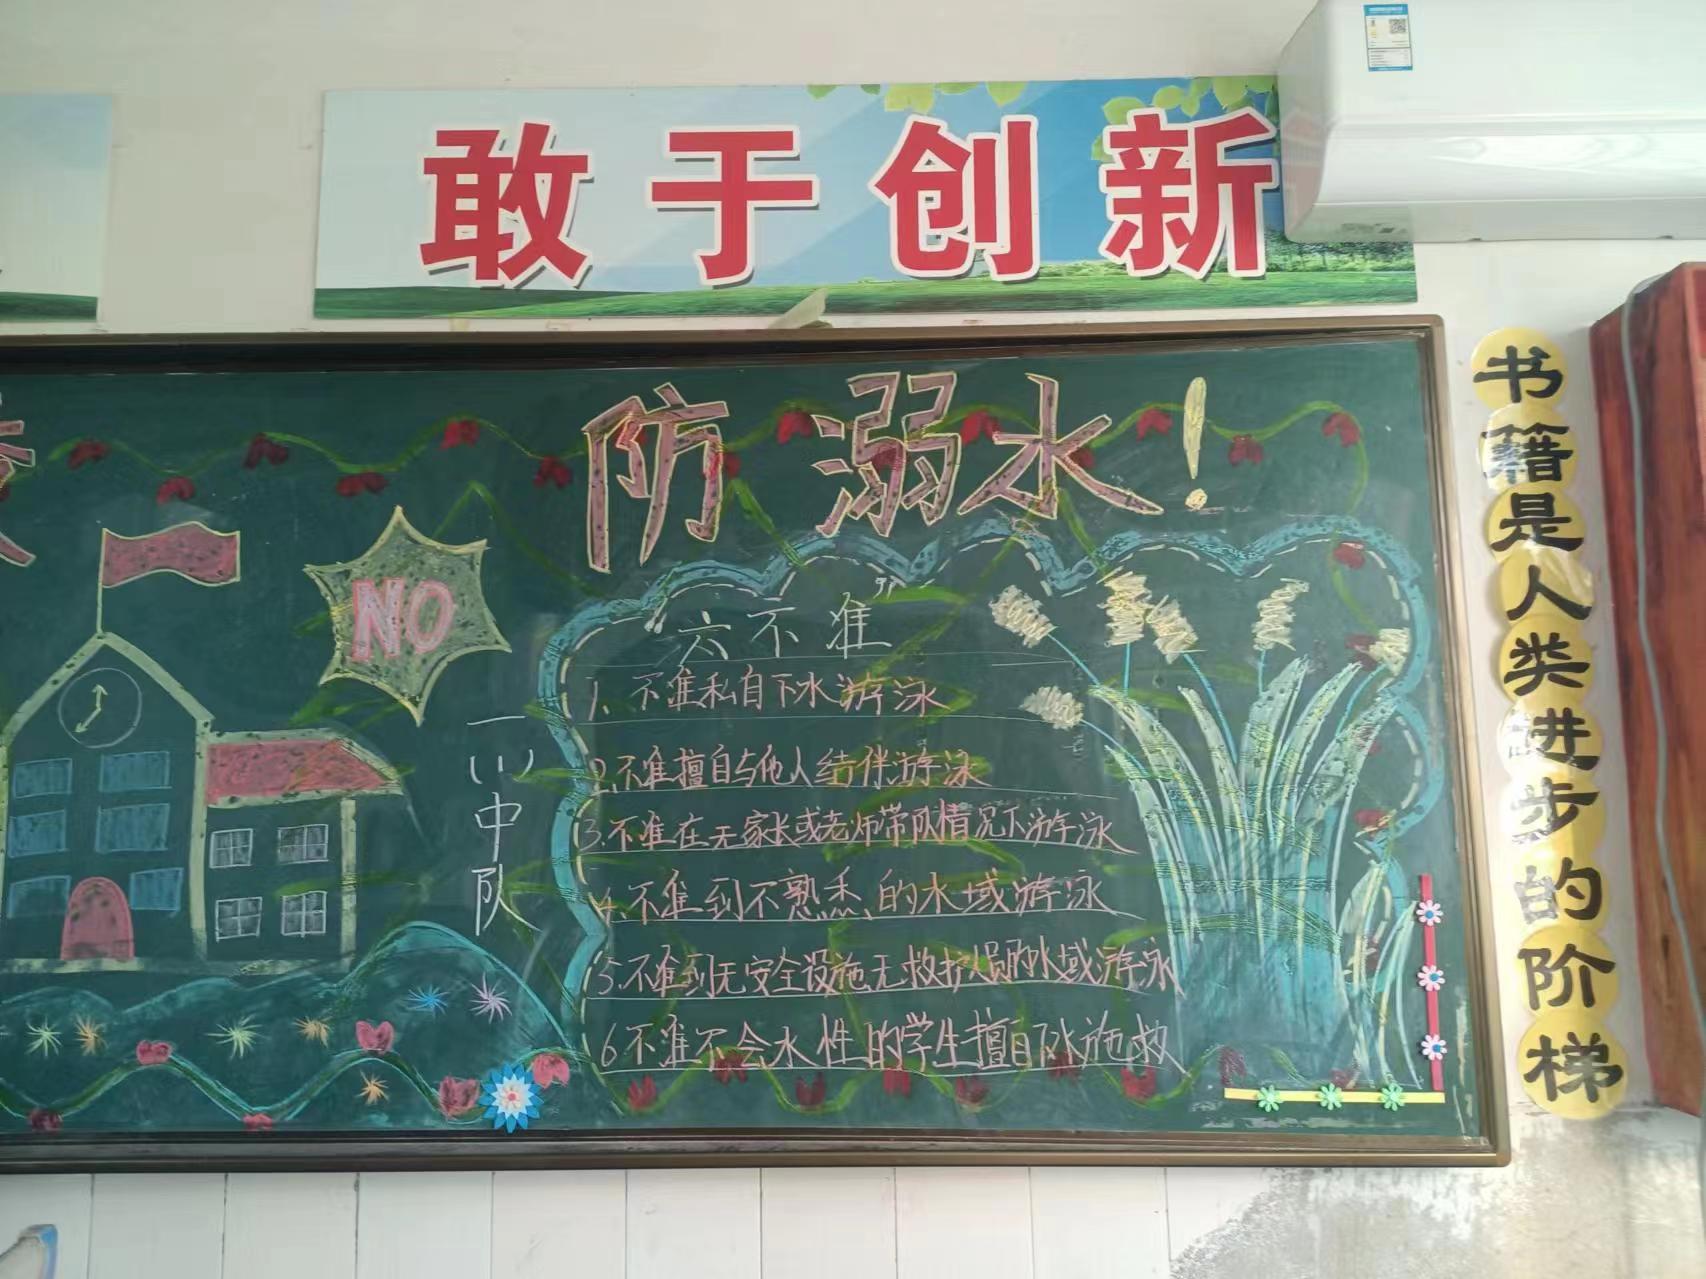 敢于创新
防溺水！
NO
“六不准”
1.不准私自下水游泳
2.不准擅自与他人结伴游泳
3.不准在无家长或老师带队情况下游泳
4.不准到不熟悉的水域游泳
5.不准到无安全设施无救护人员的水域游泳
6不准不会水性的学生擅自下水施救
一(1)中队
书籍是人类进步的阶梯